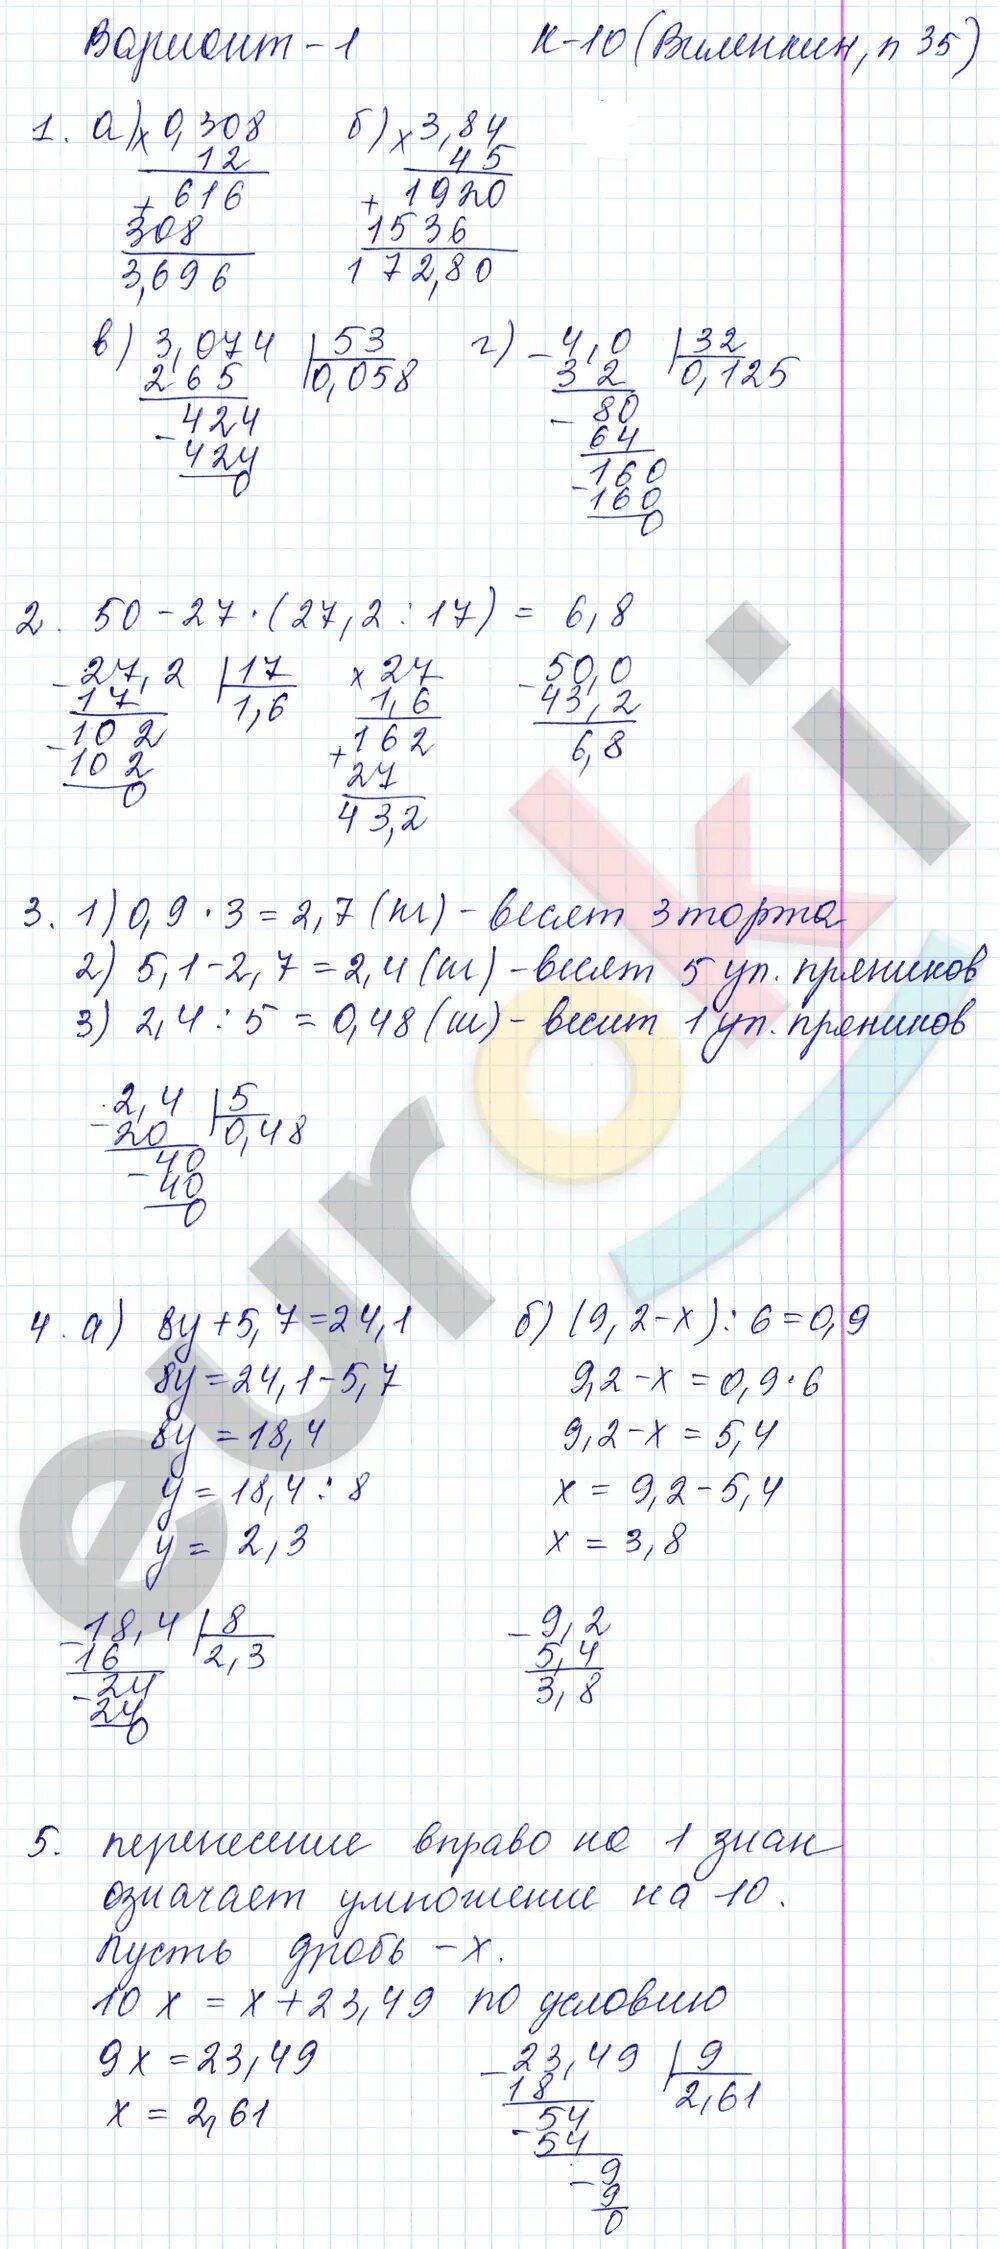 Вариант - 1 К-10 (Виленкин, п 35)
1. а) × 0,308 б) × 3,84
12 45
+ 616 + 1920
308 1536
3,696 172,80
в) 3,074 | 53 г) - 4,0 | 32
265 0,058 32 0,125
- 424 - 80
424 64
0 - 160
160
0
2. 50 - 27 · (27,2 : 17) = 6,8
- 27,2 | 17 × 27 - 50,0
17 1,6 1,6 43,2
- 102 + 162 6,8
102 27
0 43,2
3. 1) 0,9 · 3 = 2,7 (кг) - весят 3 торта
2) 5,1 - 2,7 = 2,4 (кг) - весят 5 уп. пряников
3) 2,4 : 5 = 0,48 (кг) - весит 1 уп. пряников
- 2,4 | 5
20 0,48
- 40
40
0
4. а) 8y + 5,7 = 24,1 б) (9,2 - x) : 6 = 0,9
8y = 24,1 - 5,7 9,2 - x = 0,9 · 6
8y = 18,4 9,2 - x = 5,4
y = 18,4 : 8 x = 9,2 - 5,4
y = 2,3 x = 3,8
- 18,4 | 8 - 9,2
16 2,3 5,4
- 24 3,8
24
0
5. перенесение вправо на 1 знак
означает умножение на 10.
Пусть дробь - x.
10x = x + 23,49 по условию
9x = 23,49 - 23,49 | 9
x = 2,61 18 2,61
- 54
54
- 9
9
0
euroki